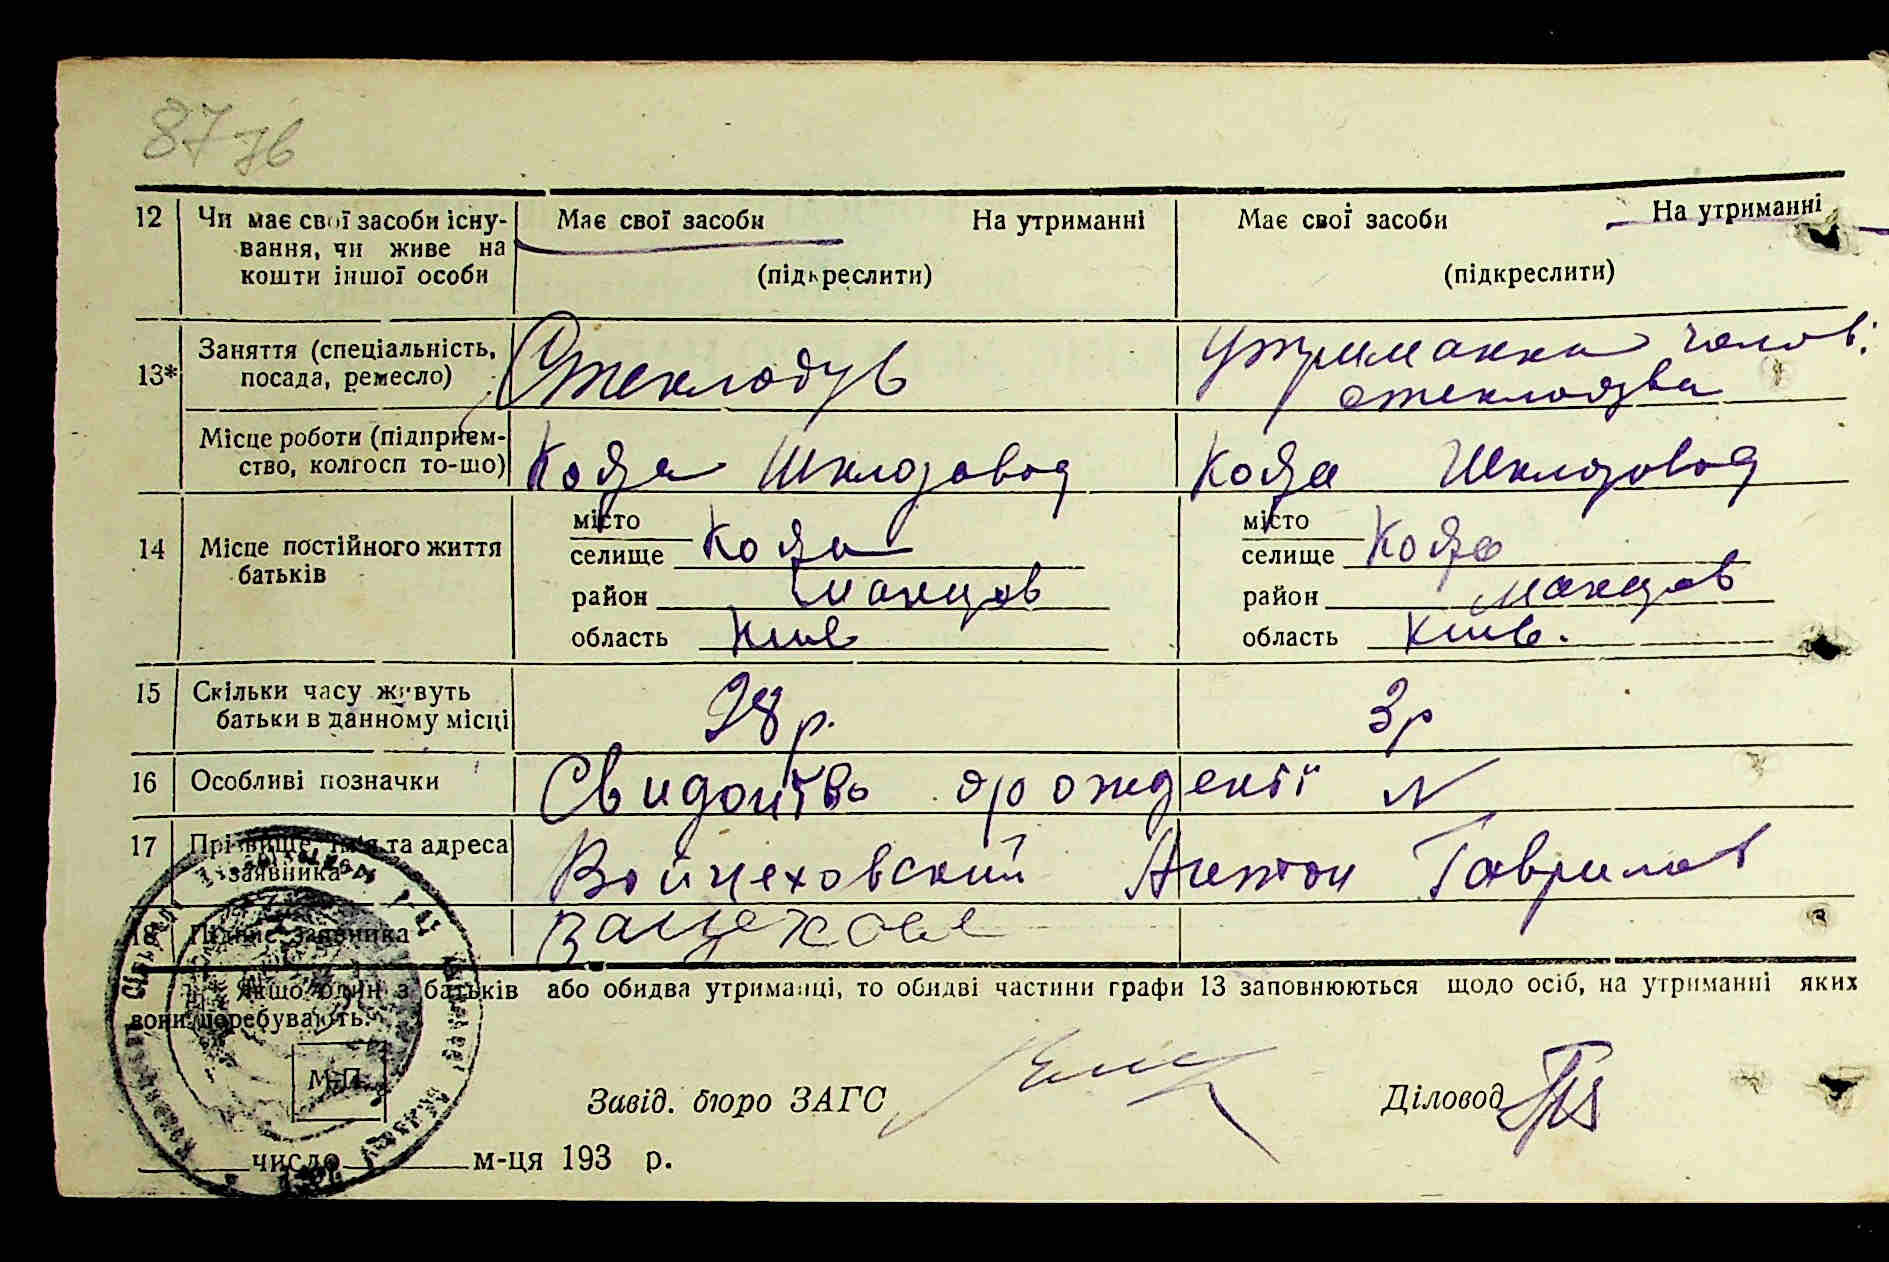 87 зв
12 Чи має свої засоби існу- Має свої засоби На утриманні Має свої засоби На утриманні
вання, чи живе на
кошти іншої особи (підкреслити) (підкреслити)
13* Заняття (спеціальність, Стеклодув Утриманка чолов:
посада, ремесло) стеклодува
Місце роботи (підприєм- Кодра Шклозавод Кодра Шклозавод
ство, колгосп то-що)
місто місто
14 Місце постійного життя селище Кодра селище Кодра
батьків район Макаров район Макаров
область Київ область Київ.
15 Скільки часу живуть 28 р. 3 р
батьки в данному місці
16 Особливі позначки Свидоитво о рождении N
17 Прізвище, ім'я та адреса Войцеховский Антон Гаврилов
заявника
18 Підпис заявника
Якщо один з батьків або обидва утриманці, то обидві частини графи 13 заповнюються щодо осіб, на утриманні яких
вони перебувають.
М.П.
Завід. бюро ЗАГС Діловод
число м-ця 193 р.